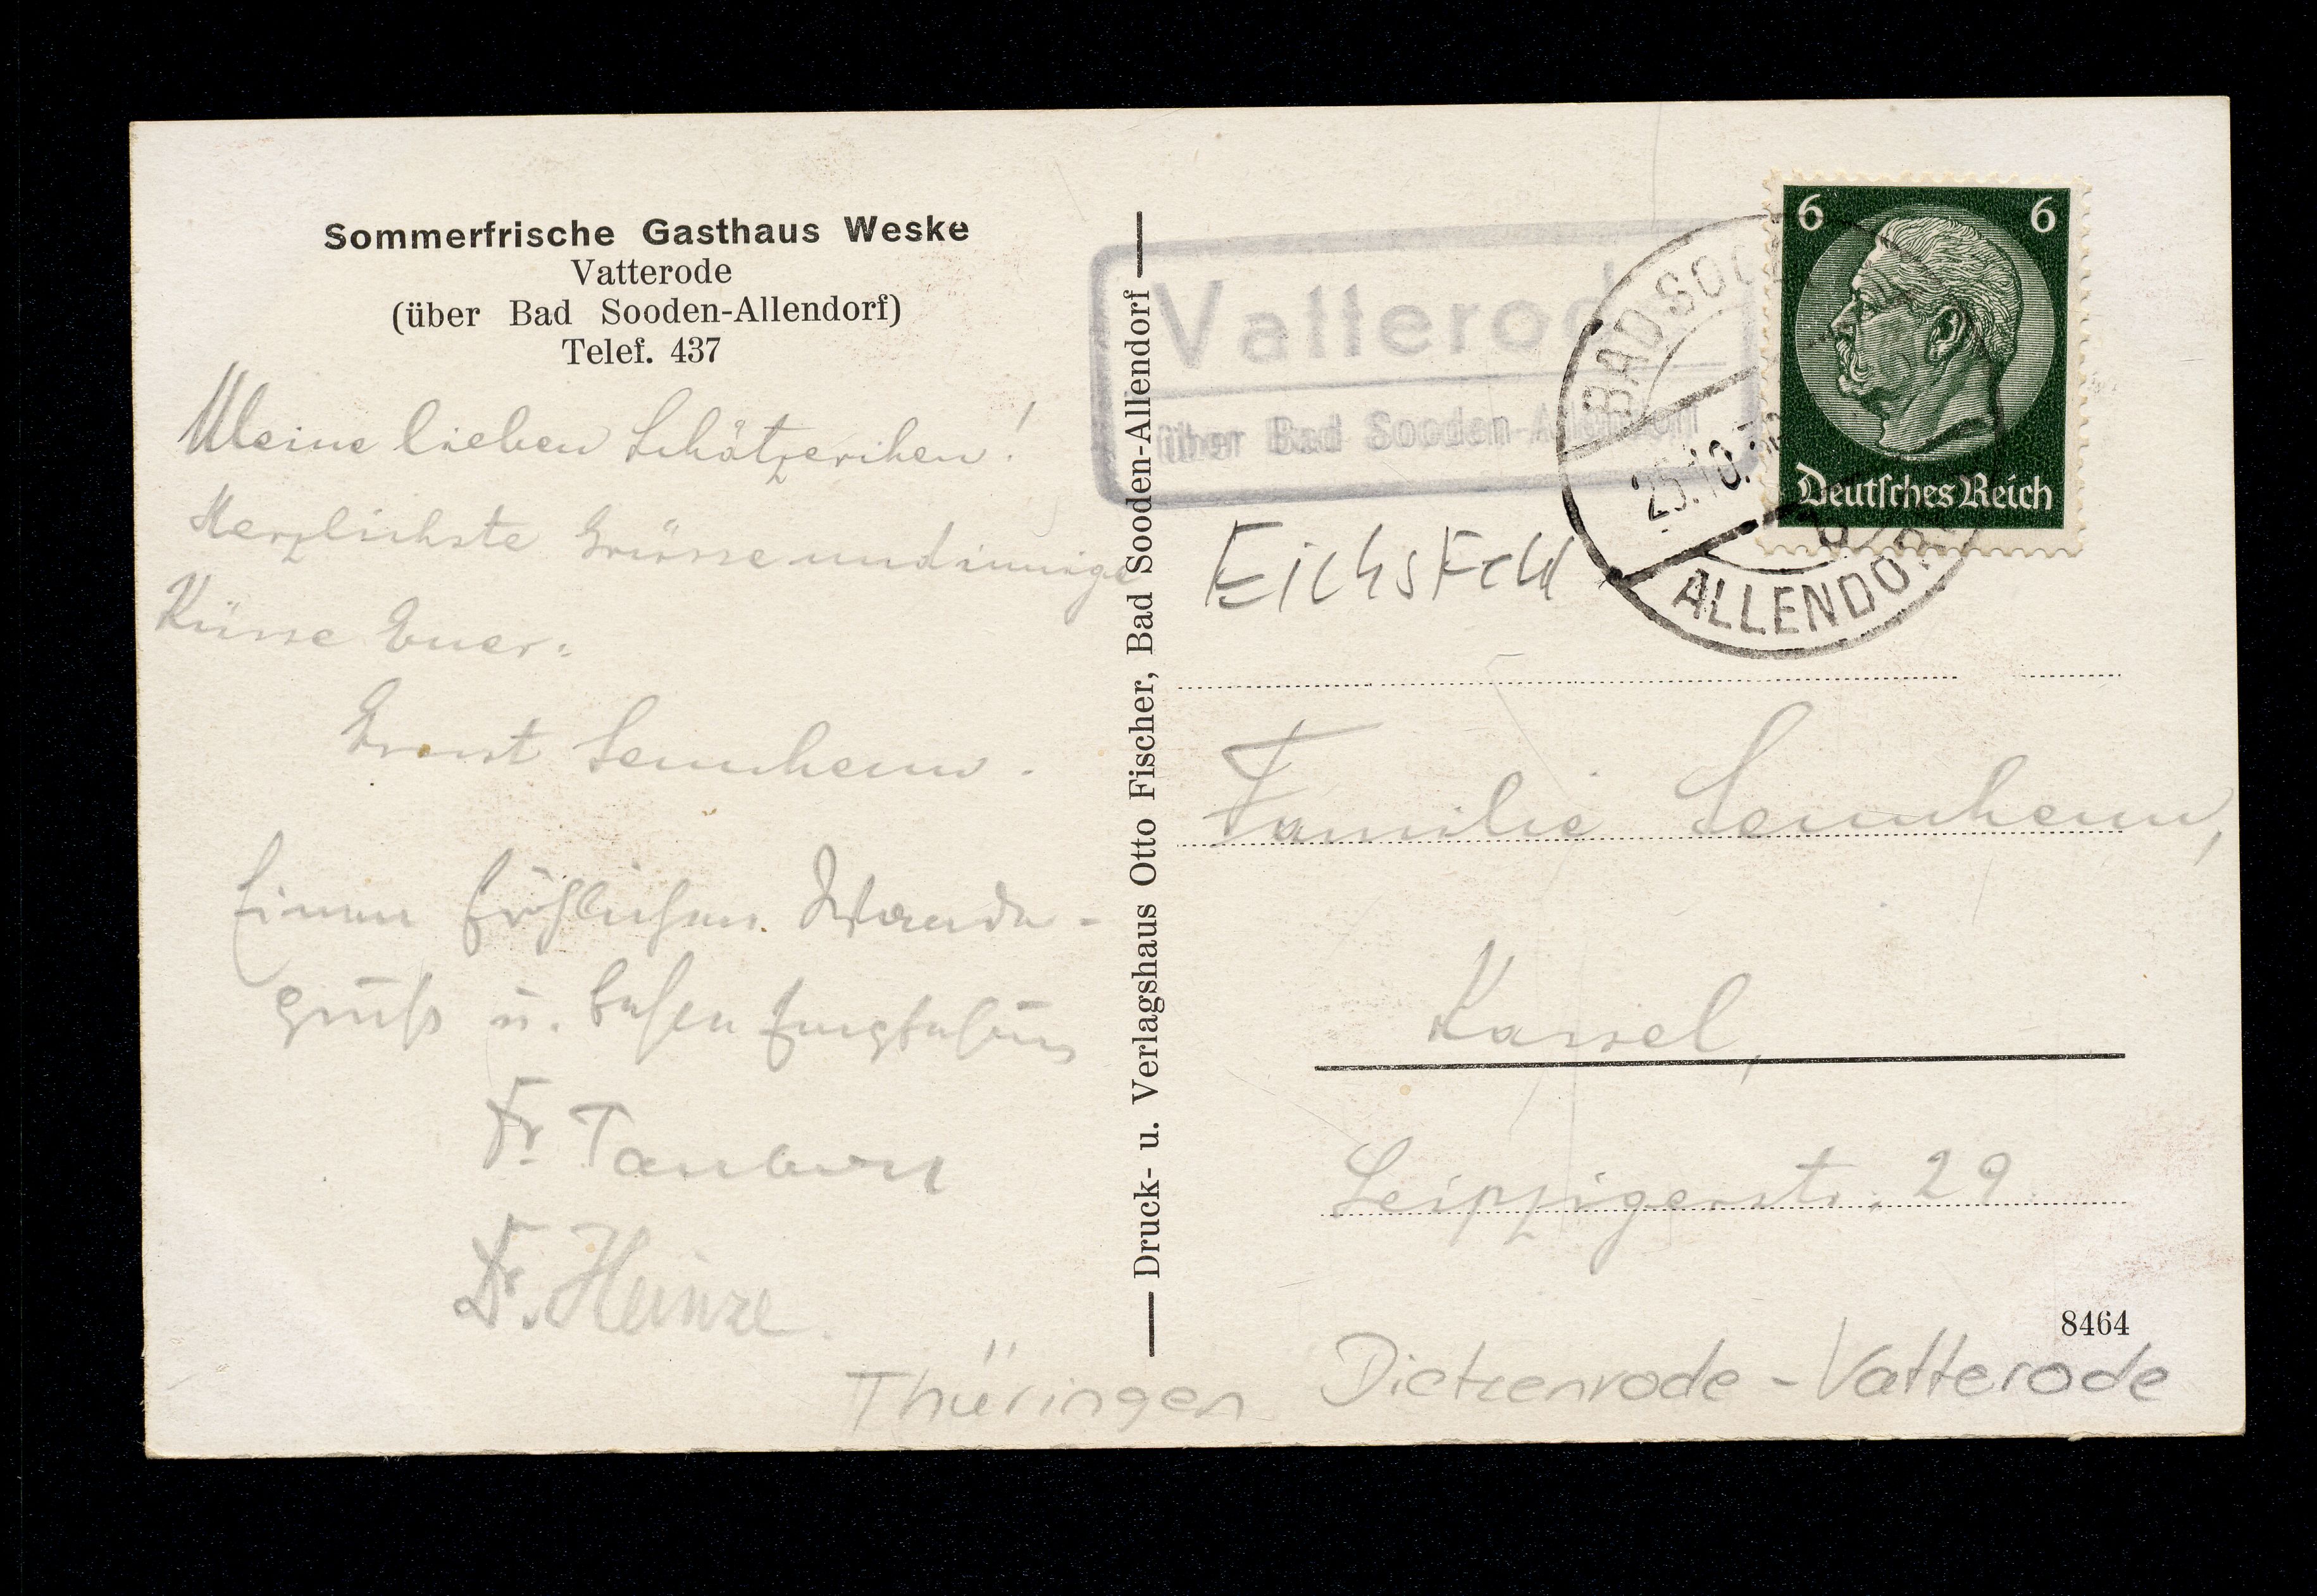 Sommerfrische Gasthaus Weske
Vatterode
(über Bad Sooden-Allendorf)
Telef. 437
Meine lieben Schätzerchen!
Herzlichste Grüsse und innige
Küsse Euer:
Ernst Sennhenn.
Einen fröhlichen Wander-
gruß u.
Fr.
Dr. Heinze.
Druck- u. Verlagshaus Otto Fischer, Bad Sooden-Allendorf
Vatterod
über Bad Sooden-Allendorf
BAD SOO
25.10.
ALLENDORF
6 6
Deutsches Reich
Eichsfeld
Familie Sennhenn,
Kassel,
Leipzigerstr. 29
8464
Thüringen Dietzenrode-Vatterode